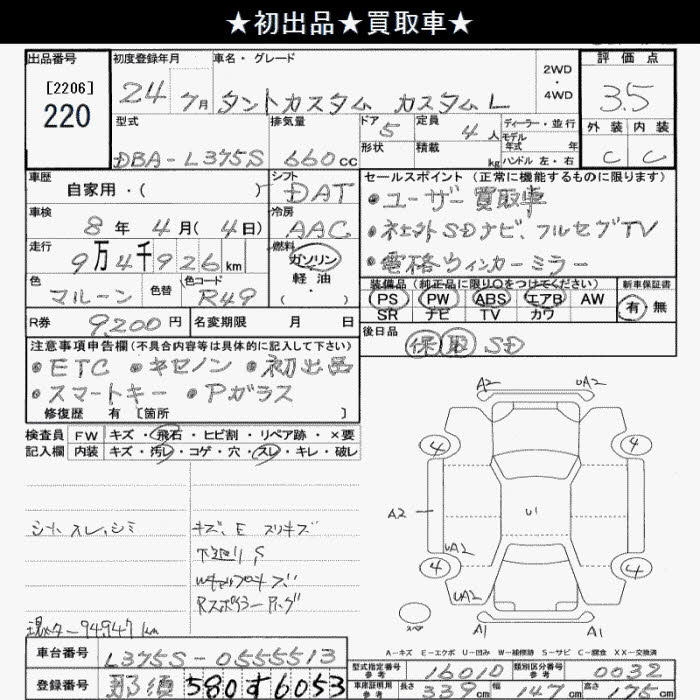 ★初出品★買取車★
出品番号
[2206]
220
初度登録年月
24 7月
車名・グレード
タントカスタム カスタムL
2WD
4WD
評価点
3.5
外装 内装
C C
型式
DBA-L375S
排気量
660cc
ドア 5
形状
定員 4人
積載 kg
ディーラー・並行
モデル年式 年
ハンドル 左・右
車歴
自家用・( )
シフト
DAT
車検
8年4月(4日)
冷房
AAC
走行
9万4千926km
燃料
ガソリン
軽油
( ・ )
色
マルーン
色替
色コード
R49
R券 9,200円
名変期限 月 日
セールスポイント (正常に機能するものに限ります)
・ユーザー買取車
・社外SDナビ、フルセグTV
・電格ウィンカーミラー
装備品(純正品に限り○をつけてください)
PS PW ABS エアB AW
SR ナビ TV カワ
新車保証書
有・無
後日品
保 取 SD
注意事項申告欄(不具合内容等は具体的に記入して下さい)
・ETC ・キセノン ・初出品
・スマートキー ・Pガラス
修復歴 有 [箇所 ]
検査員記入欄
FW キズ・飛石・ヒビ割・リペア跡・×要
内装 キズ・汚レ・コゲ・穴・スレ・キレ・破レ
シート スレ、シミ
キズ、E スリキズ
下廻り S
現メーター 94,947km
A2 UA2
4 4
A2 U1
UA2
4 4
UA2
スペア A1 A1
A-キズ E-エクボ U-凹み W-補修跡 S-サビ C-腐食 XX-交換済
車台番号 L375S-0555513
登録番号 那須 580 す 6053
型式指定番号 参考 16010
類別区分番号 参考 0032
車庫証明用 参考 長さ 339cm 幅 147cm 高さ 175cm